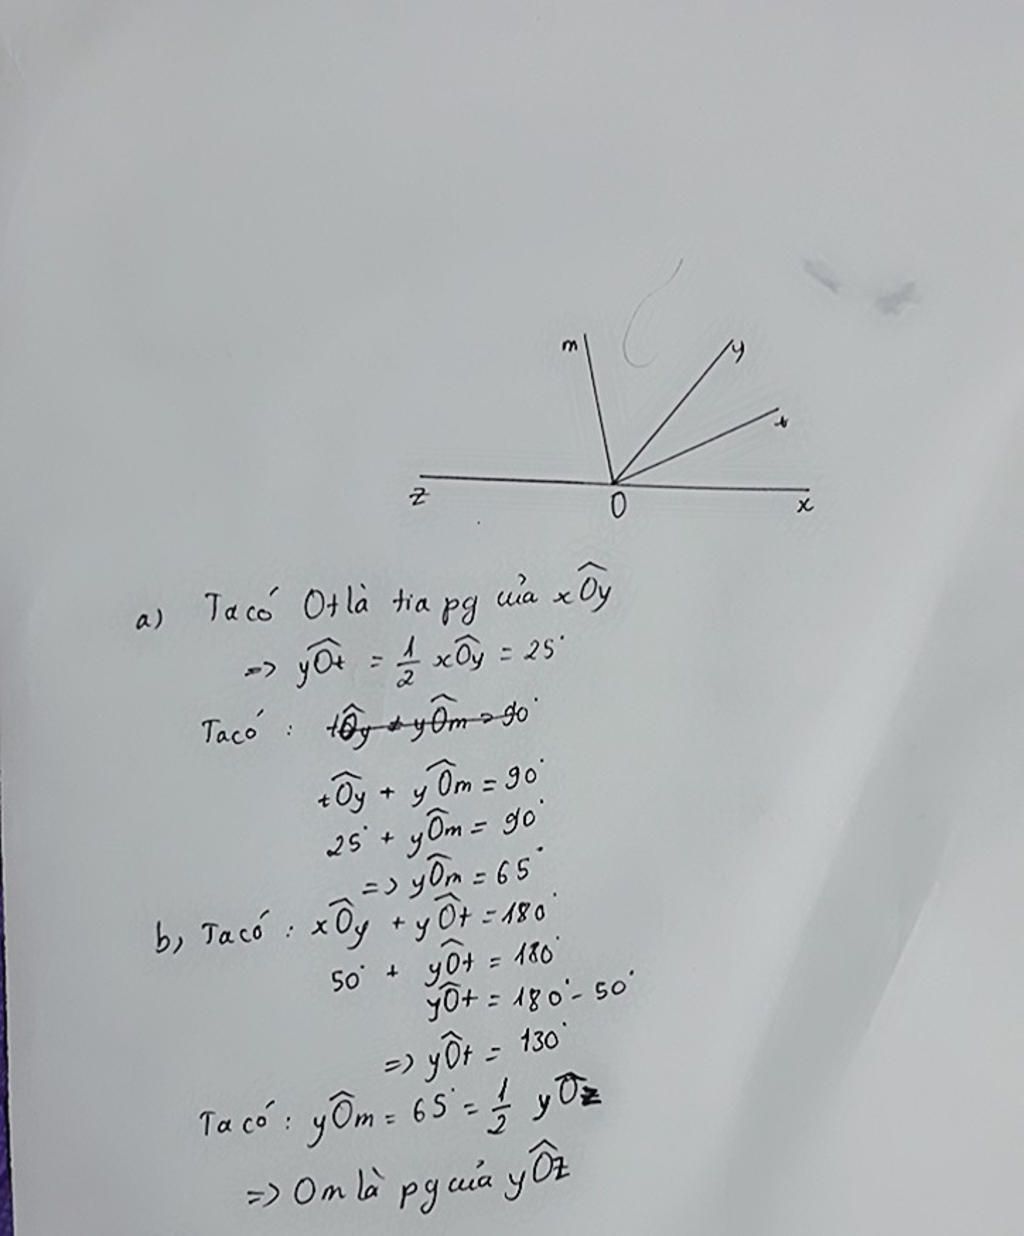 m
y
t
z
O
x
a) Ta có Ot là tia pg của xÔy
=> yÔt = 1/2 xÔy = 25°
Ta có : tÔy + yÔm = 90°
tÔy + yÔm = 90°
25° + yÔm = 90°
=> yÔm = 65°
b, Ta có : xÔy + yÔt = 180°
50° + yÔt = 180°
yÔt = 180° - 50°
=> yÔt = 130°
Ta có : yÔm = 65° = 1/2 yÔz
=> Om là pg của yÔz